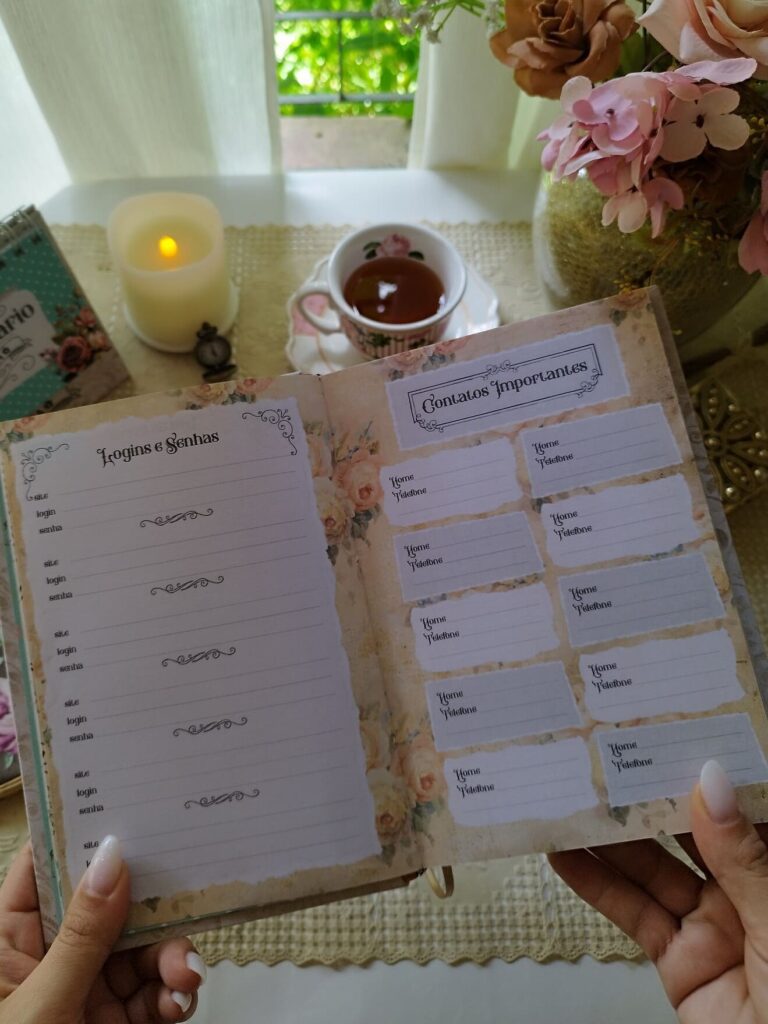 Logins e Senhas
site
login
senha
site
login
senha
site
login
senha
site
login
senha
site
login
senha
site
Contatos Importantes
Nome
Telefone
Nome
Telefone
Nome
Telefone
Nome
Telefone
Nome
Telefone
Nome
Telefone
Nome
Telefone
Nome
Telefone
Nome
Telefone
Nome
Telefone